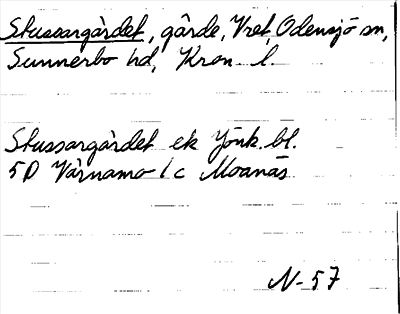 Stussargärdet, gärde, Vret, Odensjö sn,
Sunnerbo hd, Kron. l.
Stussargärdet ek Jönk. bl.
5D Värnamo 1c Moanäs
N-57